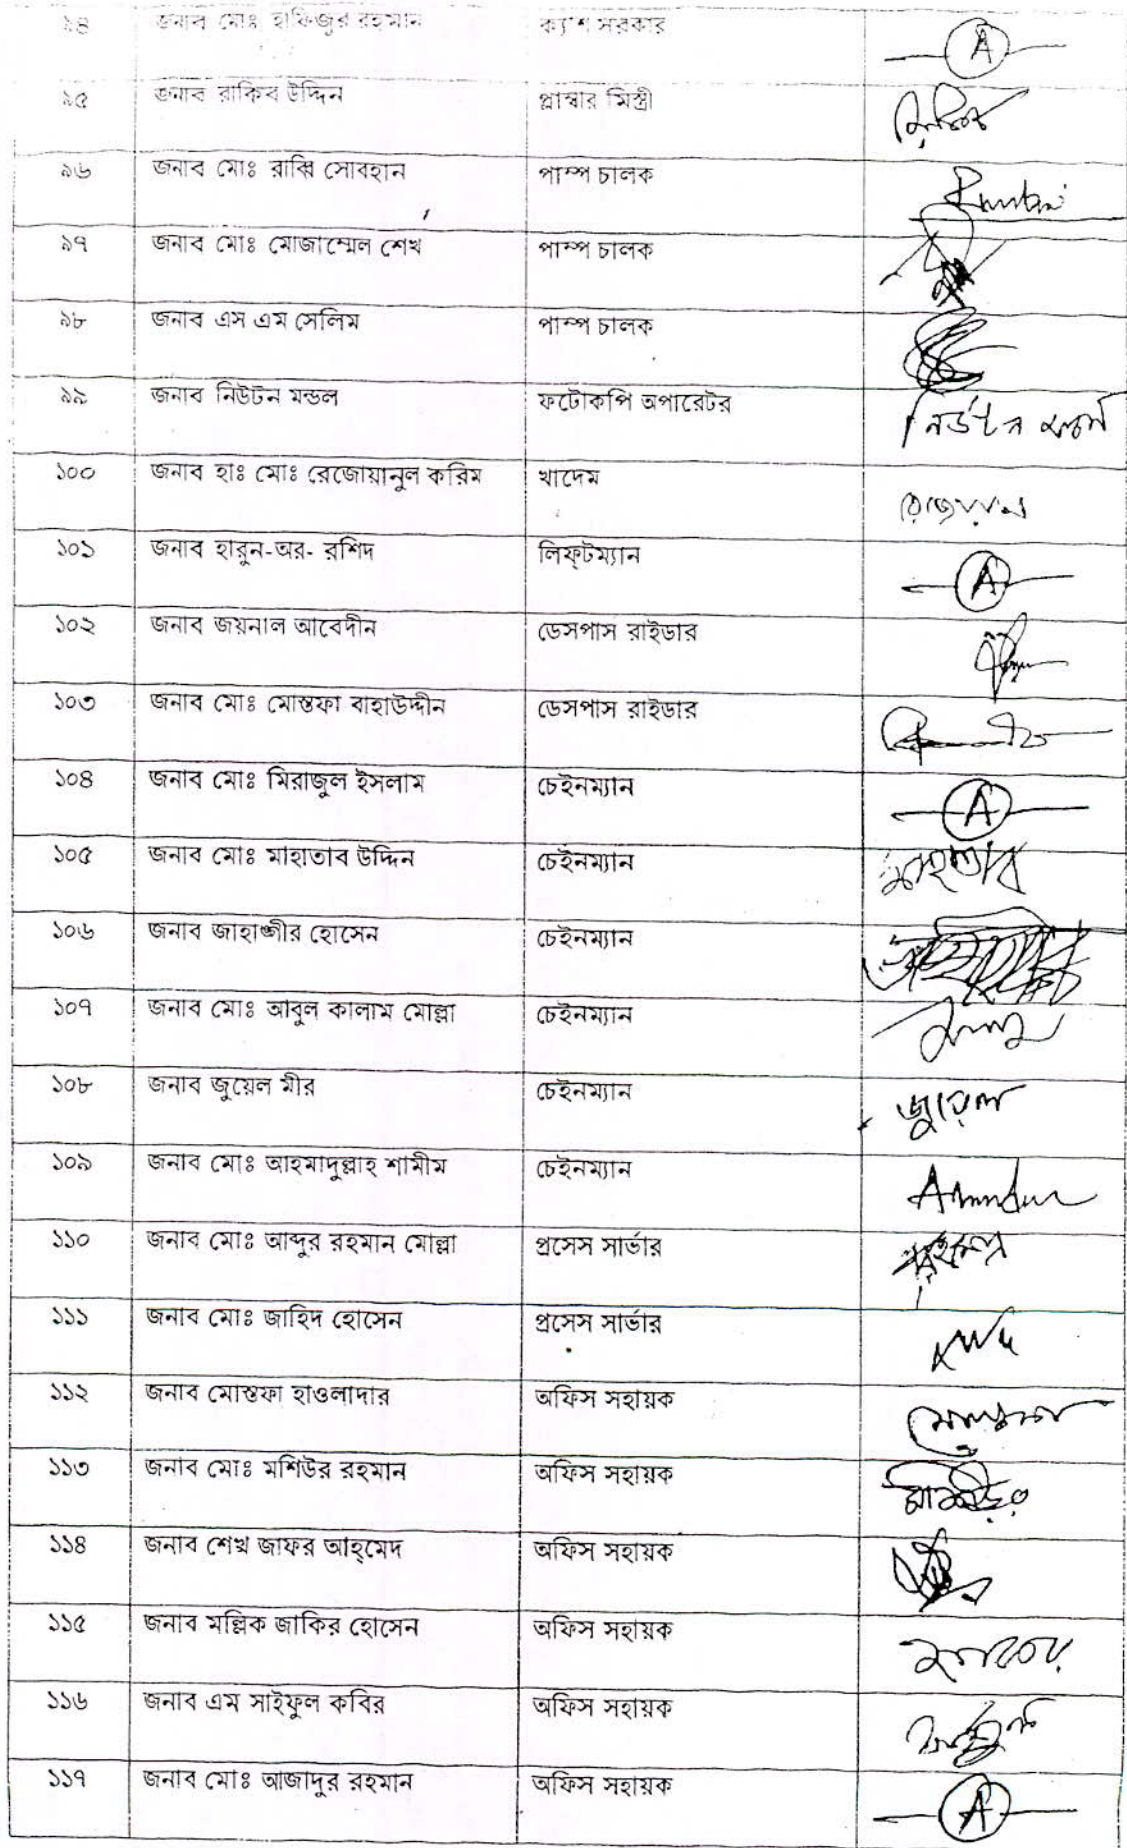 ৯৪ জনাব মোঃ হাফিজুর রহমান ক্যাশ সরকার A
৯৫ জনাব রাকিব উদ্দিন প্লাম্বার মিস্ত্রী
৯৬ জনাব মোঃ রাব্বি সোবহান পাম্প চালক
৯৭ জনাব মোঃ মোজাম্মেল শেখ পাম্প চালক
৯৮ জনাব এস এম সেলিম পাম্প চালক
৯৯ জনাব নিউটন মন্ডল ফটোকপি অপারেটর নিউটন মন্ডল
১০০ জনাব হাঃ মোঃ রেজোয়ানুল করিম খাদেম
১০১ জনাব হারুন-অর- রশিদ লিফ্‌টম্যান A
১০২ জনাব জয়নাল আবেদীন ডেসপাস রাইডার
১০৩ জনাব মোঃ মোস্তফা বাহাউদ্দীন ডেসপাস রাইডার
১০৪ জনাব মোঃ মিরাজুল ইসলাম চেইনম্যান A
১০৫ জনাব মোঃ মাহাতাব উদ্দিন চেইনম্যান মাহতাব
১০৬ জনাব জাহাঙ্গীর হোসেন চেইনম্যান
১০৭ জনাব মোঃ আবুল কালাম মোল্লা চেইনম্যান
১০৮ জনাব জুয়েল মীর চেইনম্যান জুয়েল
১০৯ জনাব মোঃ আহমাদুল্লাহ শামীম চেইনম্যান
১১০ জনাব মোঃ আব্দুর রহমান মোল্লা প্রসেস সার্ভার
১১১ জনাব মোঃ জাহিদ হোসেন প্রসেস সার্ভার
১১২ জনাব মোস্তফা হাওলাদার অফিস সহায়ক
১১৩ জনাব মোঃ মশিউর রহমান অফিস সহায়ক
১১৪ জনাব শেখ জাফর আহ্‌মেদ অফিস সহায়ক
১১৫ জনাব মল্লিক জাকির হোসেন অফিস সহায়ক
১১৬ জনাব এম সাইফুল কবির অফিস সহায়ক
১১৭ জনাব মোঃ আজাদুর রহমান অফিস সহায়ক A